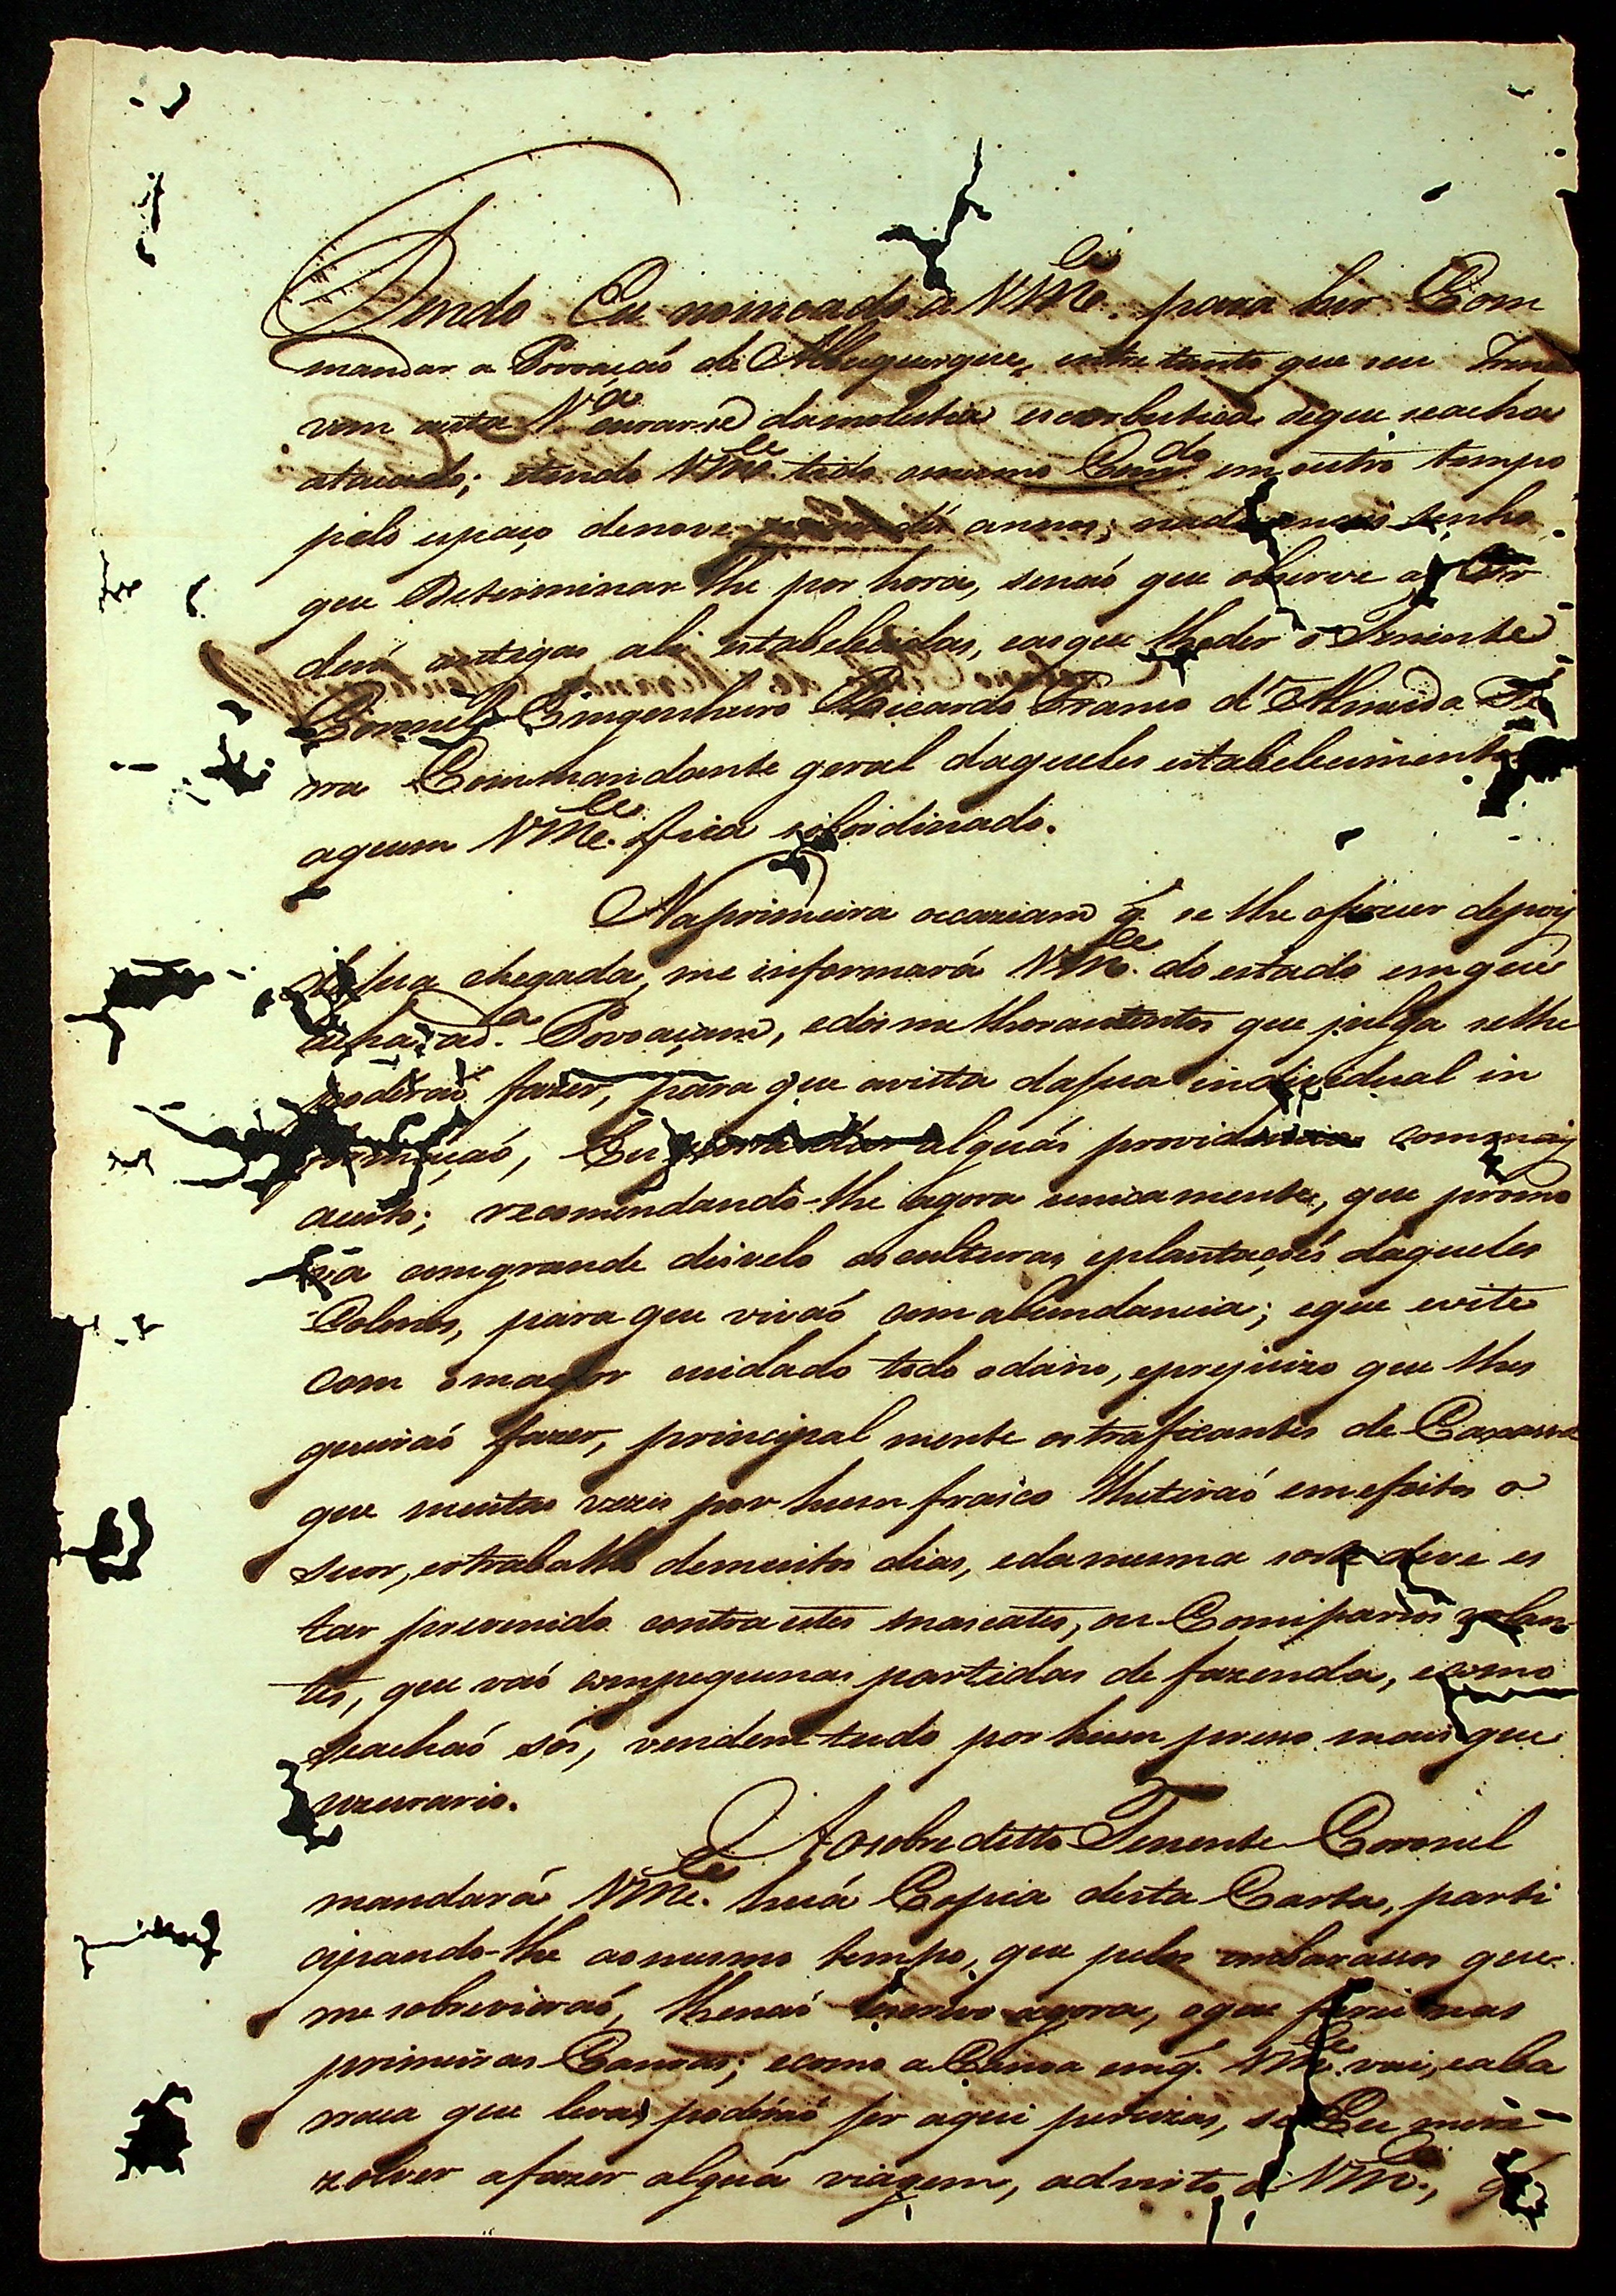 Tendo Eu nomeado a VM.ce para hir Com
mandar a Povoaçaõ de Albuquerque, entre tanto que seu Irmaõ
vem a esta V.ª curar-se da molestia escorbutica de que se acha
atacado; e tendo VM.ce tido o mesmo Com.do em outro tempo
pelo espaço de nove annos; nada mais tenho
que Determinar lhe por hora, senaõ que observe as Or
dens antigas ali estabelecidas, e as que lhe der o Tenente
Coronel Eingenheiro Ricardo Franco d'Almeida Se
rra Commandante geral daqueles estabelecimentos
a quem VM.ce fica sobordinado.
Na primeira occaziam q. se lhe oferecer depois
de sua chegada, me informará VM.ce do estado em que
achar a d.a Povoaçam, e dos melhoramentos que julga se lhe
poderaõ fazer, para que a vista da sua individual in
formaçaõ, Eu possa dar alguãs providencias com mais
acerto; recomendando-lhe agora unicamente, que promo
va com grande disvelo as culturas, e plantaçoẽs daqueles
Colonos, para que vivaõ com abundancia; e que evite
com o mayor cuidado todo o dano, e prejuizo que lhes
queiraõ fazer, principal mente os traficantes de Caxassa
que muitas vezes por hum frasco lhe tiraõ em efeitos o
suor, e o trabalho de muitos dias, e da mesma sorte deve es
tar prevenido contra estes mascates, ou Comiparios volan-
tes, que vaõ com pequenas partidas de fazenda, e como
se achaõ sós, vendem tudo por hum preso mais que
uzurario.
Ao sobreditto Tenente Coronel
mandará VM.ce huã Copia desta Carta, parti
cipando-lhe ao mesmo tempo, que pelos embarassos que
me sobrevieraõ, lhe naõ escrevo agora, o que farei nas
primeiras Canoas; e como a Canoa em q. VM.ce vai, e a ba
rraca que leva, podémo ser aqui percizas, se Eu me re
zolver a fazer alguã viagem, advirto a VM.ce, q.